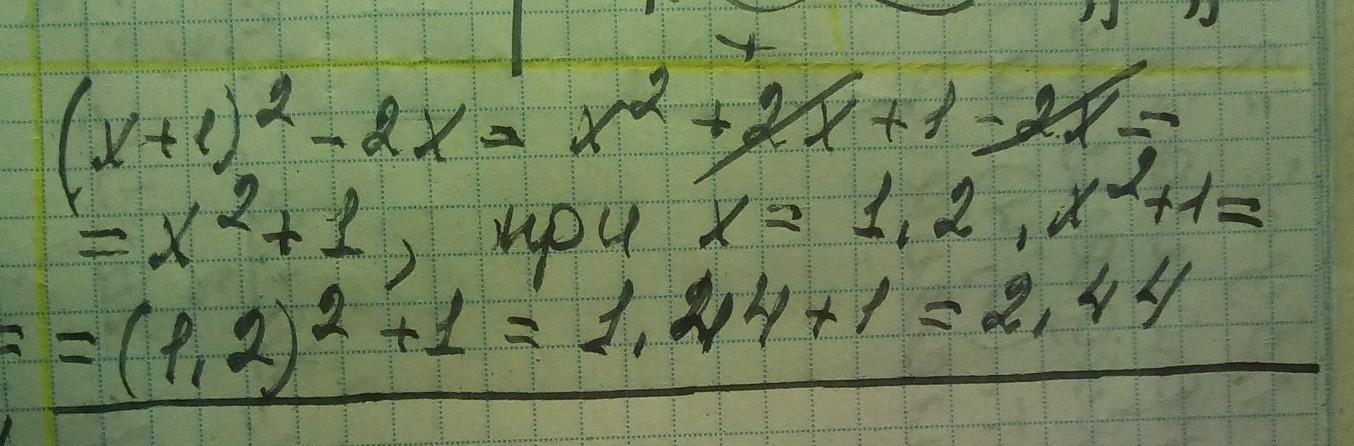 (x+1)² - 2x = x² + 2x + 1 - 2x =
= x² + 1, при x = 1,2, x²+1 =
= (1,2)² + 1 = 1,44 + 1 = 2,44